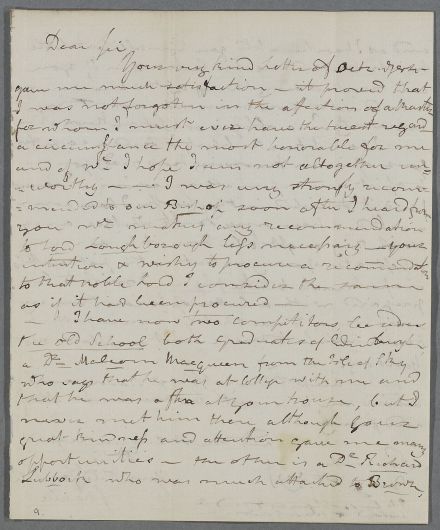 Dear Sir
Your very kind letter of Octr.
gave me much satisfaction — it proved that
I was not forgotten in the affections of a Master
for whom I must ever have the truest regard
a circumstance the most honorable for me
and of wch. I hope I am not altogether un=
=worthy — — I was very strongly recom=
=mended to our Bishop soon after I heard from
you wch. makes any recommendation
to Lord Loughborough less necessary — your
intention & wishes to procure a recommendation
to that noble Lord I consider the same
as if it had been procured —
— I have now two competitors
the old School both graduates of Edinburgh
a Dr. Malcom Macqueen from the Isle of Sky
who says that he was at College with me and
that he was often at your house, but I
never met him there although your
great kindness and attention gave me many
opportunities — the other is a Dr. Richard
Lubbock who was much attached to Brown,